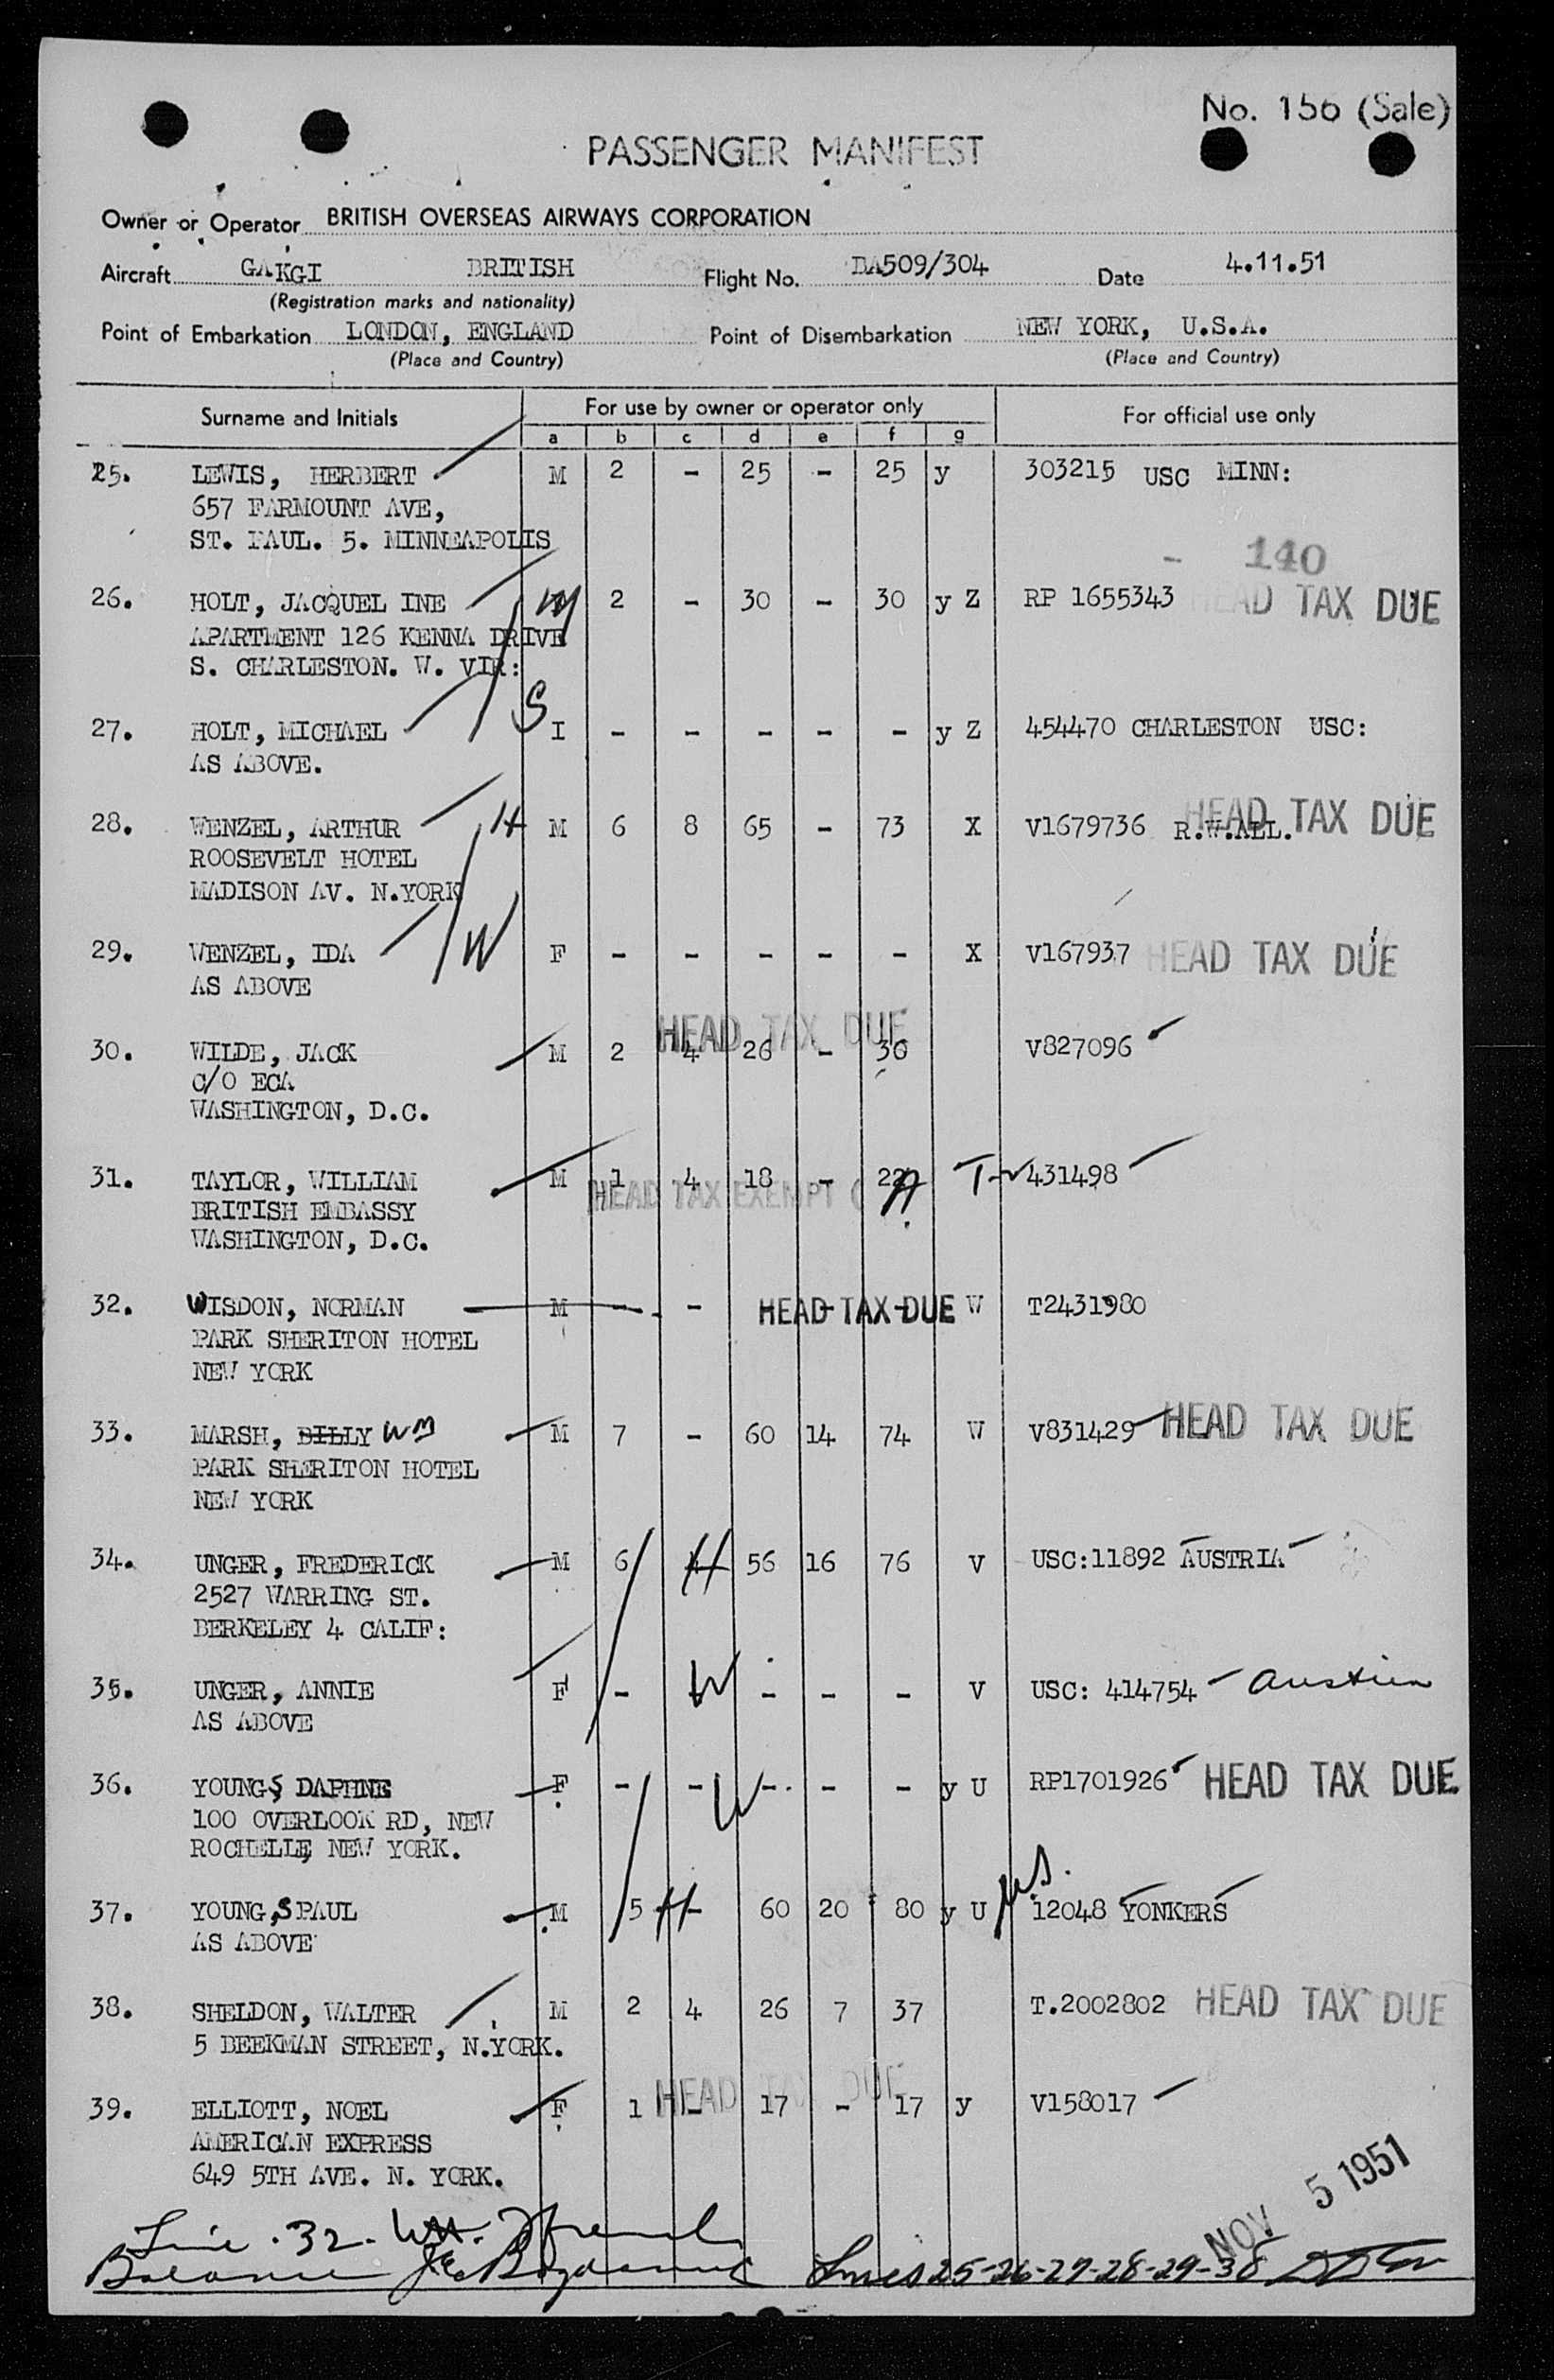 No. 156 (Sale)
PASSENGER MANIFEST
Owner or Operator BRITISH OVERSEAS AIRWAYS CORPORATION
Aircraft GAKGI BRITISH Flight No. BA509/304 Date 4.11.51
(Registration marks and nationality)
Point of Embarkation LONDON, ENGLAND Point of Disembarkation NEW YORK, U.S.A.
(Place and Country) (Place and Country)
Surname and Initials For use by owner or operator only For official use only
a b c d e f g
25. LEWIS, HERBERT M 2 - 25 - 25 y 303215 USC MINN:
657 FARMOUNT AVE,
ST. PAUL. 5. MINNEAPOLIS
- 140
26. HOLT, JACQUEL INE 2 - 30 - 30 y Z RP 1655343 HEAD TAX DUE
APARTMENT 126 KENNA DRIVE
S. CHARLESTON. W. VIR:
S
27. HOLT, MICHAEL I - - - - - y Z 454470 CHARLESTON USC:
AS ABOVE.
28. WENZEL, ARTHUR H M 6 8 65 - 73 X V1679736 R.W.ALL. HEAD TAX DUE
ROOSEVELT HOTEL
MADISON AV. N.YORK
29. WENZEL, IDA W F - - - - - X V167937 HEAD TAX DUE
AS ABOVE
HEAD TAX DUE
30. WILDE, JACK M 2 4 26 - 30 V827096
C/O ECA
WASHINGTON, D.C.
31. TAYLOR, WILLIAM M 1 4 18 - 22 T-V431498
BRITISH EMBASSY HEAD TAX EXEMPT (
WASHINGTON, D.C.
32. WISDON, NORMAN M - - HEAD TAX DUE W T2431980
PARK SHERITON HOTEL
NEW YORK
33. MARSH, BILLY WM M 7 - 60 14 74 W V831429 HEAD TAX DUE
PARK SHERITON HOTEL
NEW YORK
34. UNGER, FREDERICK M 6 H 56 16 76 V USC:11892 AUSTRIA
2527 WARRING ST.
BERKELEY 4 CALIF:
35. UNGER, ANNIE F - W - - - V USC: 414754 Austria
AS ABOVE
36. YOUNGS DAPHNE F - - - - - y U RP1701926 HEAD TAX DUE
100 OVERLOOK RD, NEW W
ROCHELLE, NEW YORK.
37. YOUNG,S PAUL M 5 H - 60 20 80 y U U.S. 12048 YONKERS
AS ABOVE
38. SHELDON, WALTER M 2 4 26 7 37 T.2002802 HEAD TAX DUE
5 BEEKMAN STREET, N.YORK.
HEAD TAX DUE
39. ELLIOTT, NOEL F 1 - 17 - 17 y V158017
AMERICAN EXPRESS
649 5TH AVE. N. YORK.
NOV 5 1951
Line . 32 -
Balance Lines 25-26-27-28-29-38